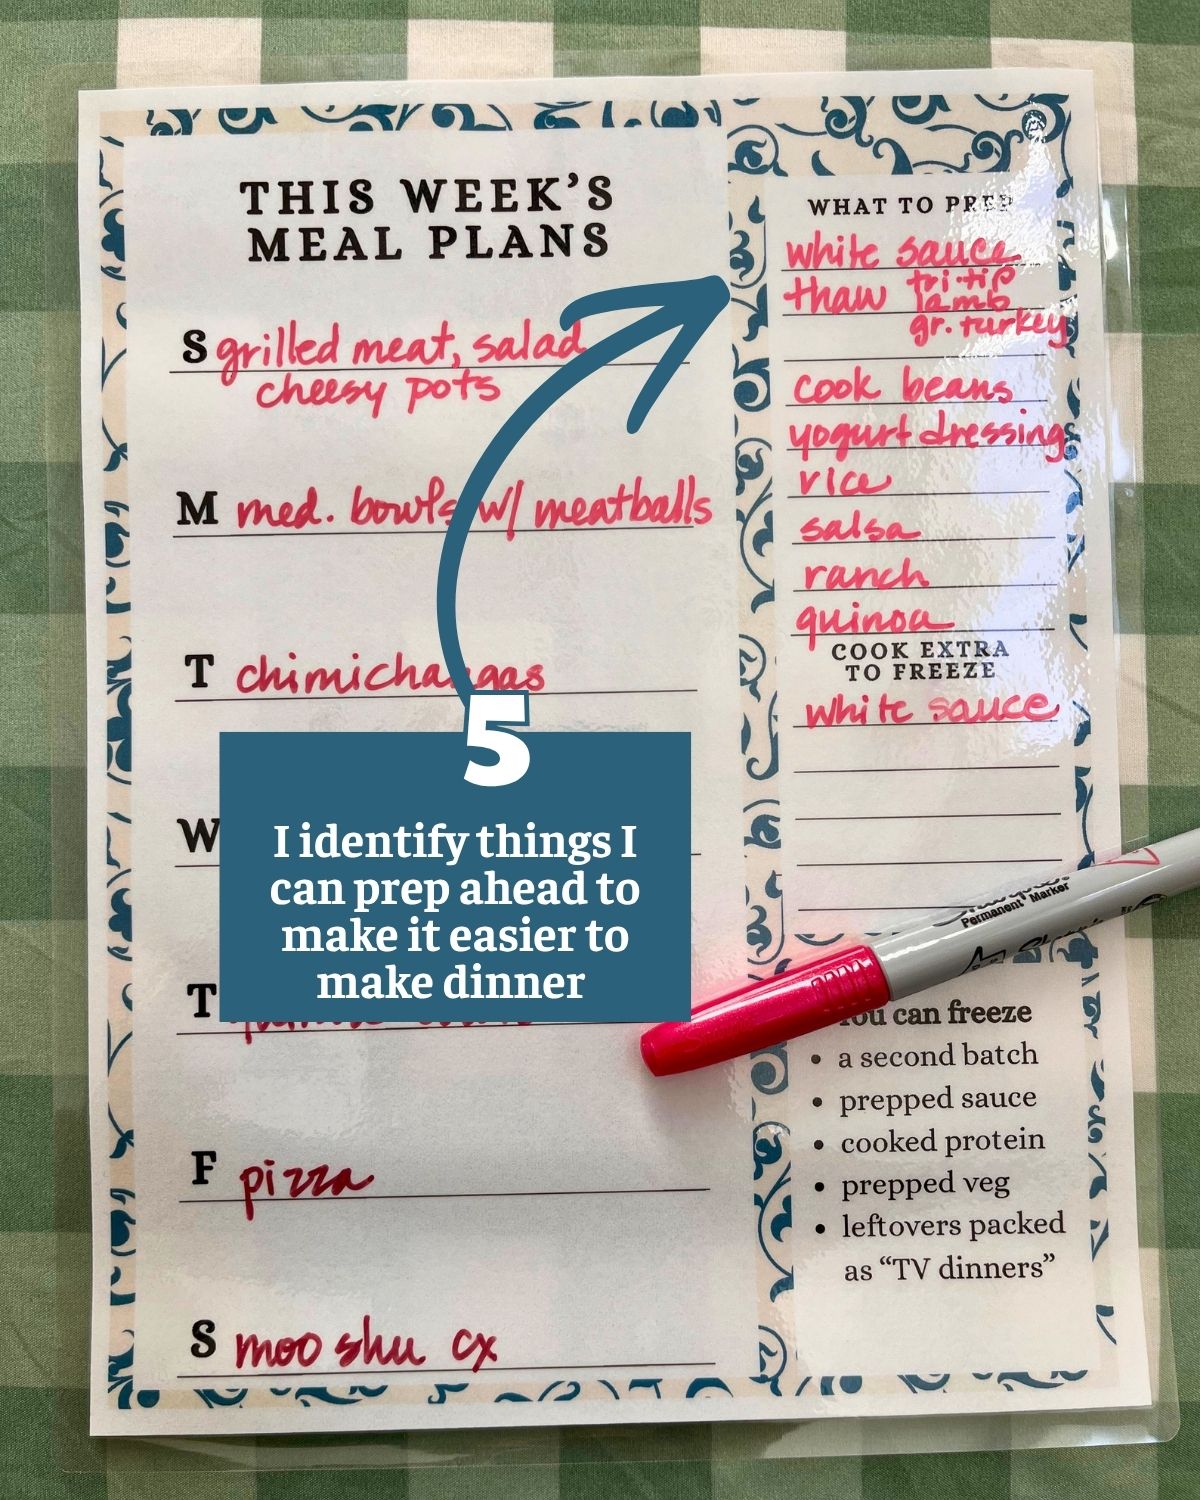 THIS WEEK'S
MEAL PLANS
S grilled meat, salad
cheesy pots
M med. bowls w/ meatballs
T chimichangas
W
T
F pizza
S moo shu cx
5
I identify things I
can prep ahead to
make it easier to
make dinner
WHAT TO PREP
white sauce
thaw tri-tip
lamb
gr. turkey
cook beans
yogurt dressing
rice
salsa
ranch
quinoa
COOK EXTRA
TO FREEZE
white sauce
Permanent Marker
You can freeze
• a second batch
• prepped sauce
• cooked protein
• prepped veg
• leftovers packed
as “TV dinners”